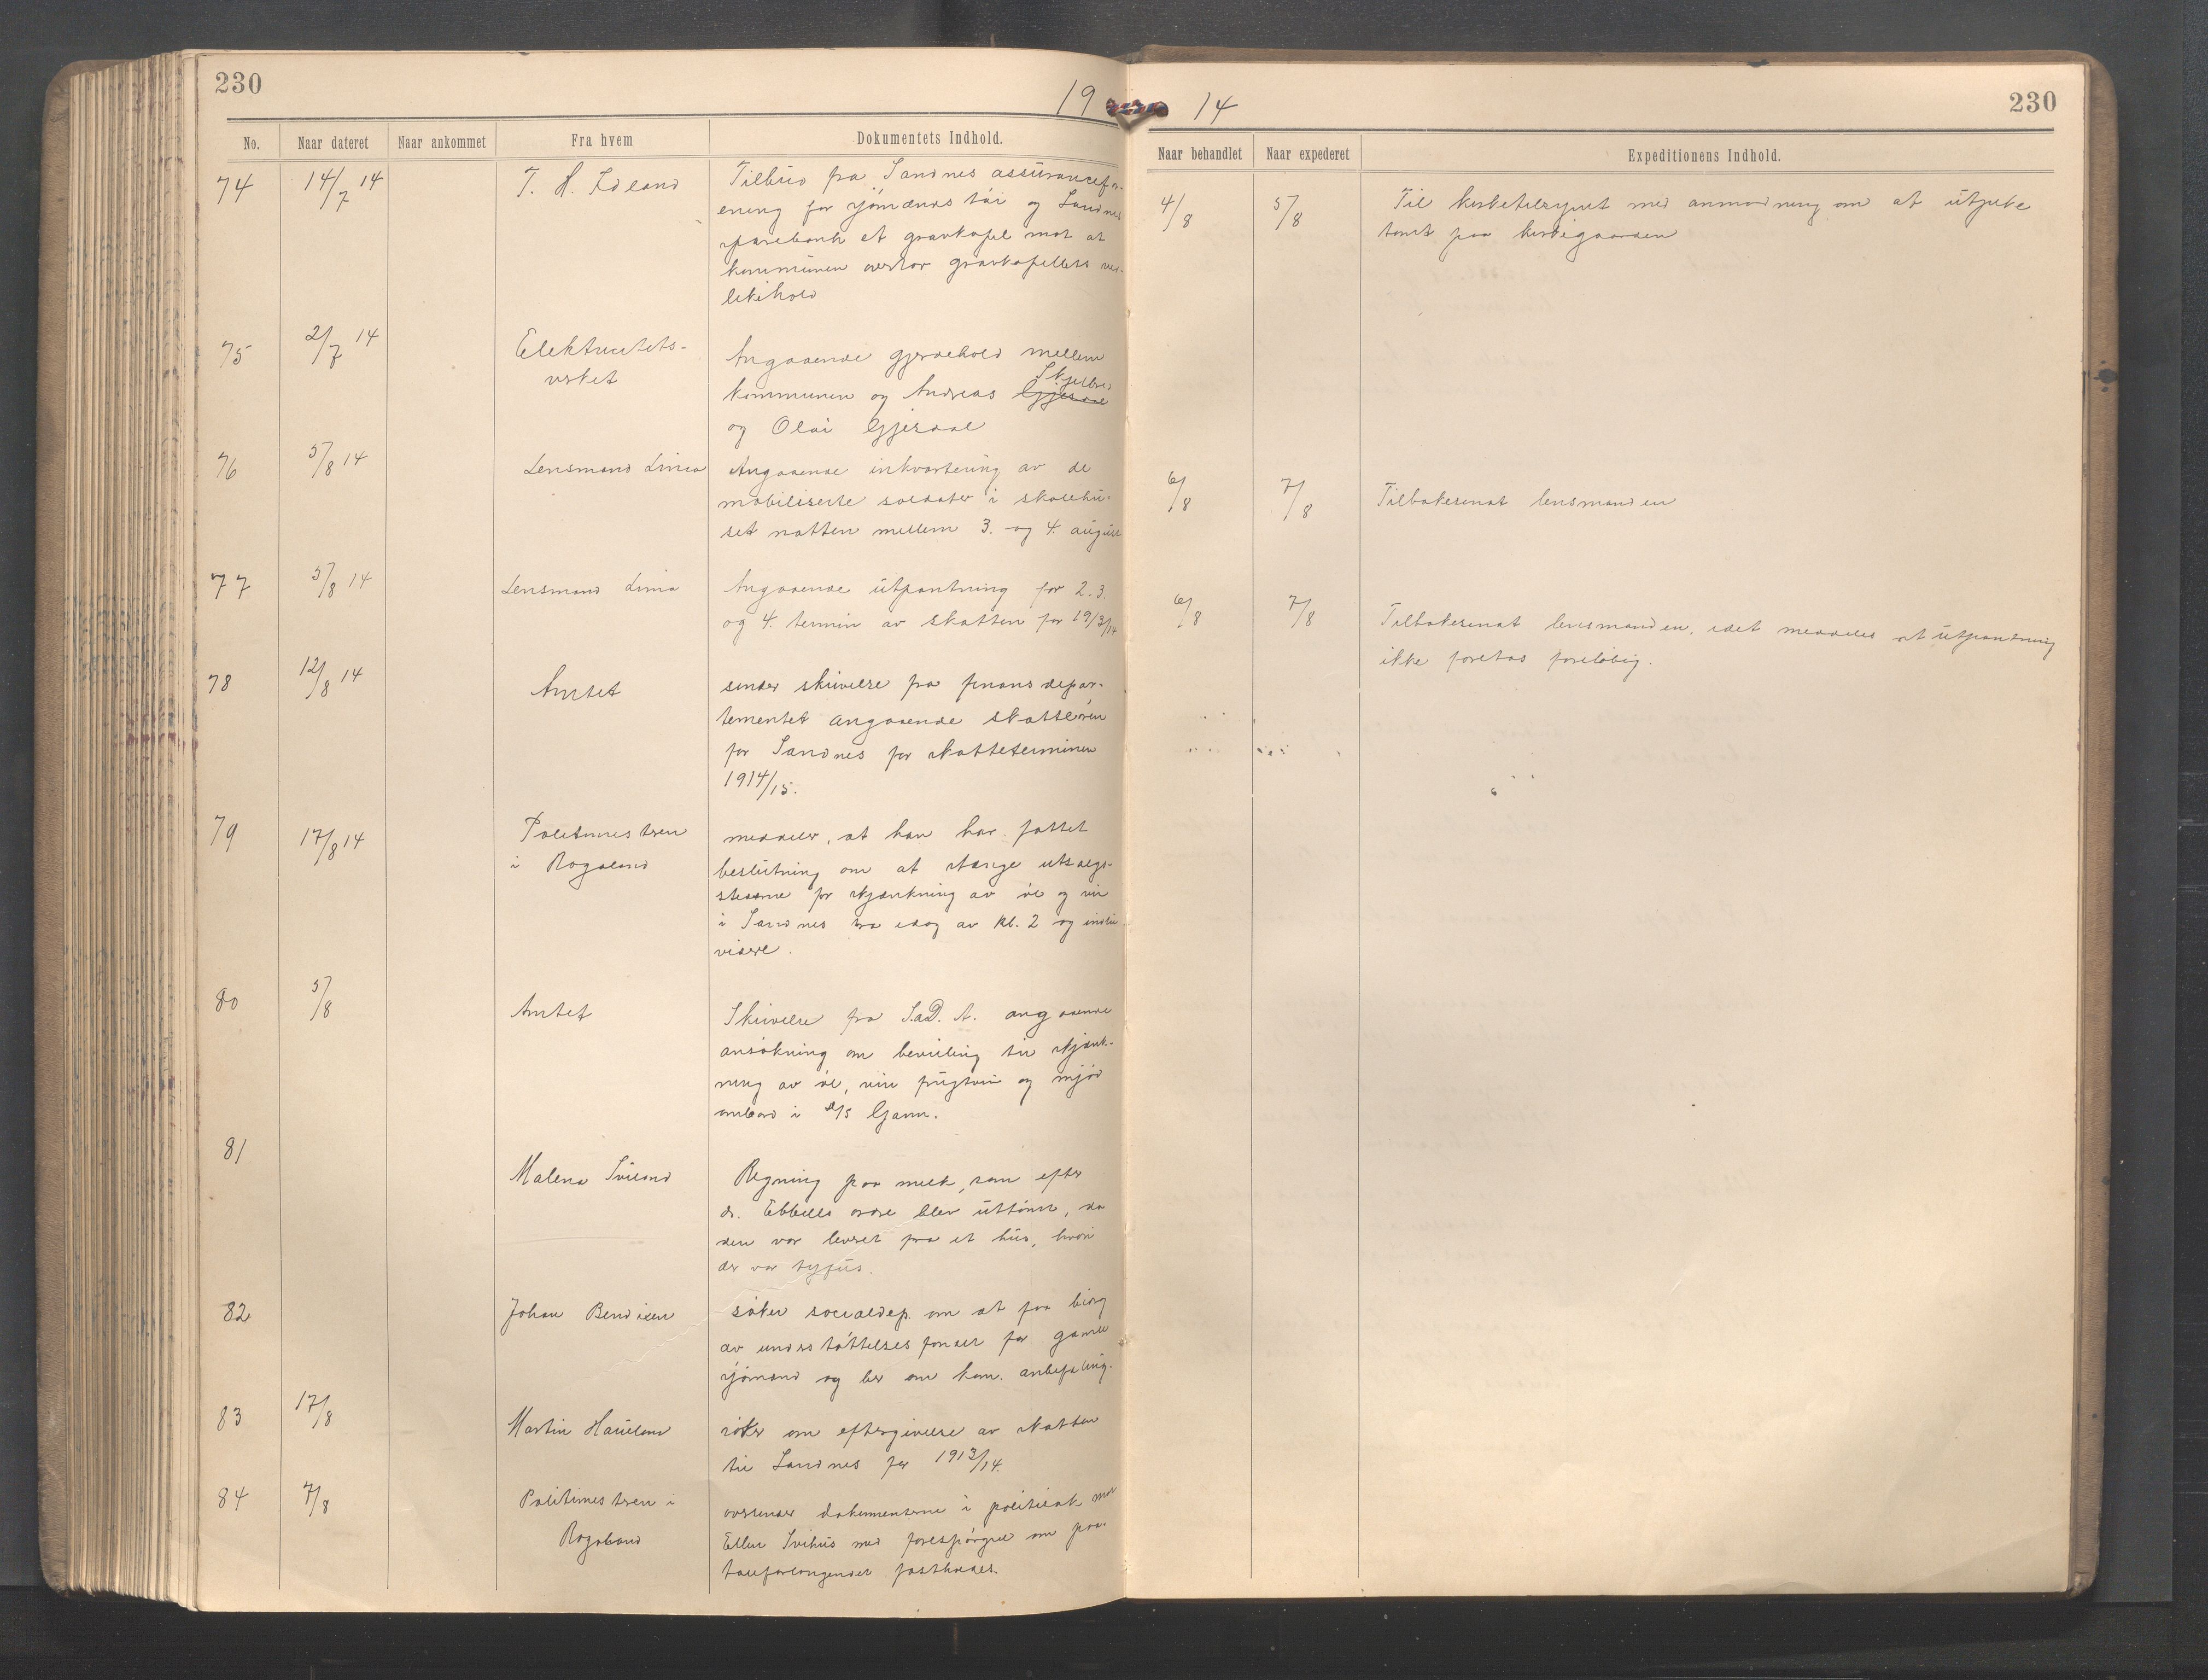 230
19
No.
Naar dateret
Naar ankommet
Fra hvem
Dokumentets Indhold.
74
14/7 14
T. H. Edland
Tilbud fra Sandnes assurancefor-
ening for sjømænds tøi og Sandnes
sparebank et gravkapel mot at
kommunen overtar gravkapellets ved-
likehold
75
2/7 14
Elektricitets-
verket
Angaaende gjerdehold mellem
Skjelbrei
kommunen og Andreas Gjesdal
og Olai Gjesdal
76
5/8 14
Lensmand Lima
Angaaende inkvartering av de
mobiliserte soldater i skolehu-
set natten mellem 3. og 4. august
77
5/8 14
Lensmand Lima
Angaaende utpantning for 2. 3.
og 4. termin av skatten for 1913/14
78
12/8 14
Amtet
sender skrivelse fra finansdepar-
tementet angaaende skattøren
for Sandnes for skatteterminen
1914/15.
79
17/8 14
Politimesteren
i Rogaland
meddeler, at han har fattet
beslutning om at stænge utsalgs-
stederne for skjænkning av øl og vin
i Sandnes fra idag av kl. 2 og indtil
videre.
80
5/8
Amtet
Skrivelse fra S.a.D. A. angaaende
ansøkning om bevilling til skjænk-
ning av øl, vin frugtvin og mjød
ombord i d/s Gann.
81
Malena Sviland
Regning paa melk, som efter
dr. Ebbells ordre blev uttømt, da
den var levert fra et hus, hvori
der var tyfus.
82
Johan Bendixen
søker socialdep. om at faa bidrag
av understøttelsesfondet for gamle
sjømænd og ber om kom. anbefaling.
83
17/8
Martin Haueland
søker om eftergivelse av skatten
til Sandnes for 1913/14.
84
7/8
Politimesteren i
Rogaland
oversender dokumenterne i politisak mot
Ellen Svihus med forespørgsel om paa-
taleforlangendet fastholdes.
14
230
Naar behandlet
Naar expederet
Expeditionens Indhold.
4/8
5/8
Til kirketilsynet med anmodning om at utpeke
tomt paa kirkegaarden
6/8
7/8
Tilbakesendt lensmanden
6/8
7/8
Tilbakesendt lensmanden, idet meddeles at utpantning
ikke foretas foreløbig.